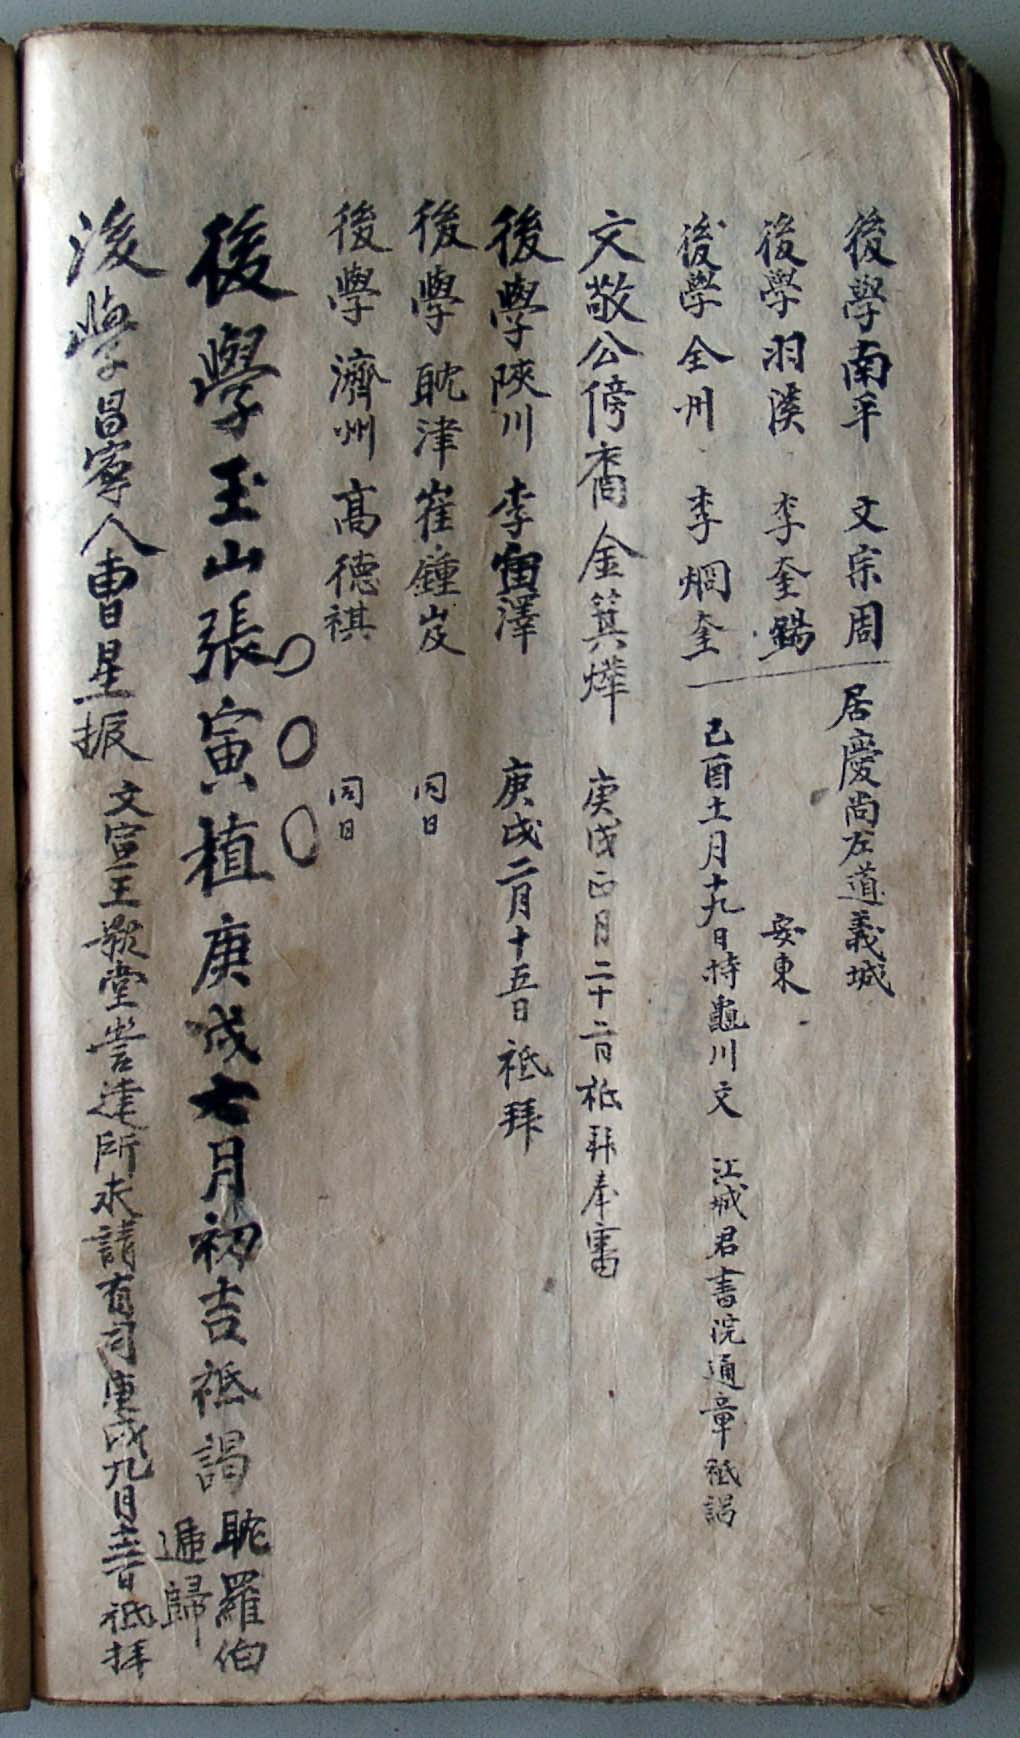 後學南平 文宗周 居慶尚左道義城
後學羽溪 李奎錫 安東
後學全州 李炯奎 己酉十一月十九日持龜川文 江城君書院通章祗謁
文敬公傍裔金箕燁 庚戌正月二十二日祗拜奉審
後學陜川李寅澤 庚戌二月十五日祗拜
後學耽津崔鍾岌 同日
後學濟州高德祺 同日
後學玉山張寅植庚戌七月初吉祗謁耽羅伯
遞歸
後學昌寧人曺星振 文宣王影堂營建所求請有司庚戌九月日祗拜